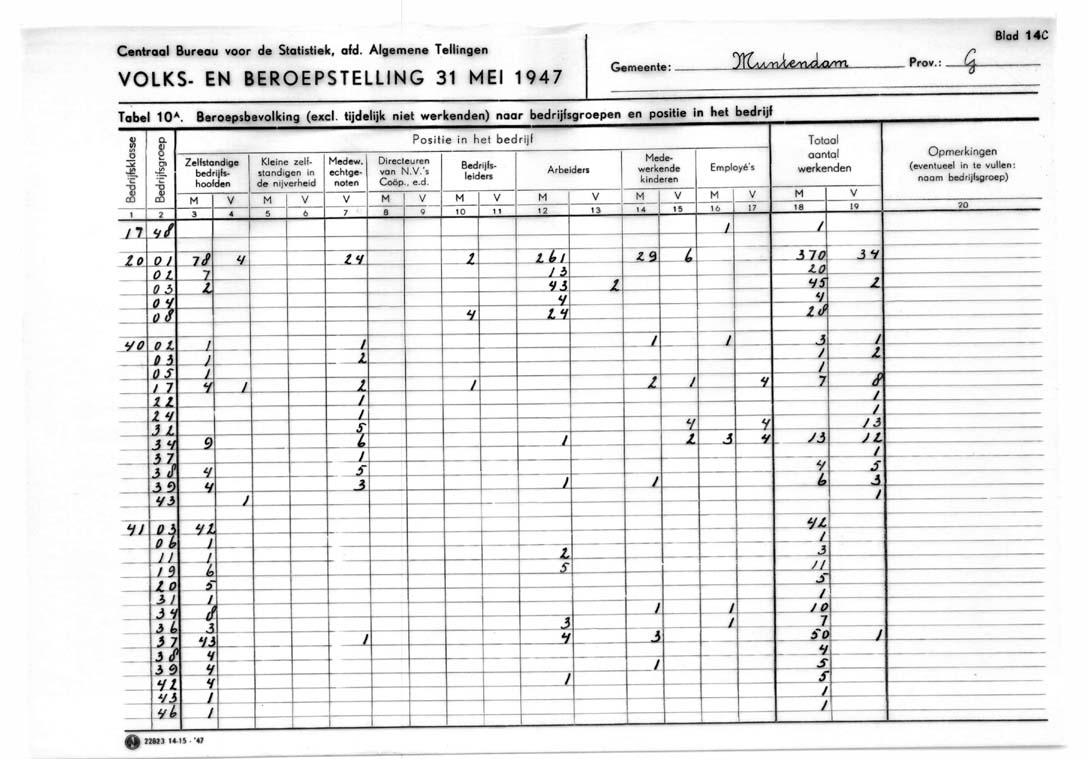 Blad 14C
Centraal Bureau voor de Statistiek, afd. Algemene Tellingen
VOLKS- EN BEROEPSTELLING 31 MEI 1947
Gemeente: Muntendam Prov.: G
Tabel 10A. Beroepsbevolking (excl. tijdelijk niet werkenden) naar bedrijfsgroepen en positie in het bedrijf
Bedrijfsklasse Bedrijfsgroep Positie in het bedrijf Totaal aantal werkenden Opmerkingen (eventueel in te vullen: naam bedrijfsgroep)
Zelfstandige bedrijfshoofden Kleine zelfstandigen in de nijverheid Medew. echtgenoten Directeuren van N.V.'s Coöp., e.d. Bedrijfsleiders Arbeiders Medewerkende kinderen Employé's
M V M V V M V M V M V M V M V M V
1 2 3 4 5 6 7 8 9 10 11 12 13 14 15 16 17 18 19 20
17 48 1 1
20 01 78 4 24 2 261 29 6 370 34
02 7 13 20
03 2 43 2 45 2
04 4 4
08 4 24 28
40 02 1 1 1 1 3 1
03 1 2 1 2
05 1 1
17 4 1 2 1 2 1 4 7 8
22 1 1
24 1 1
32 5 4 4 13
34 9 6 1 2 3 4 13 12
37 1 1
38 4 5 4 5
39 4 3 1 1 6 3
43 1 1
41 03 42 42
06 1 1
11 1 2 3
19 6 5 11
20 5 5
31 1 1
34 8 1 1 10
36 3 3 1 7
37 43 1 4 3 50 1
38 4 4
39 4 1 5
42 4 1 5
43 1 1
46 1 1
22823 14-15 - '47